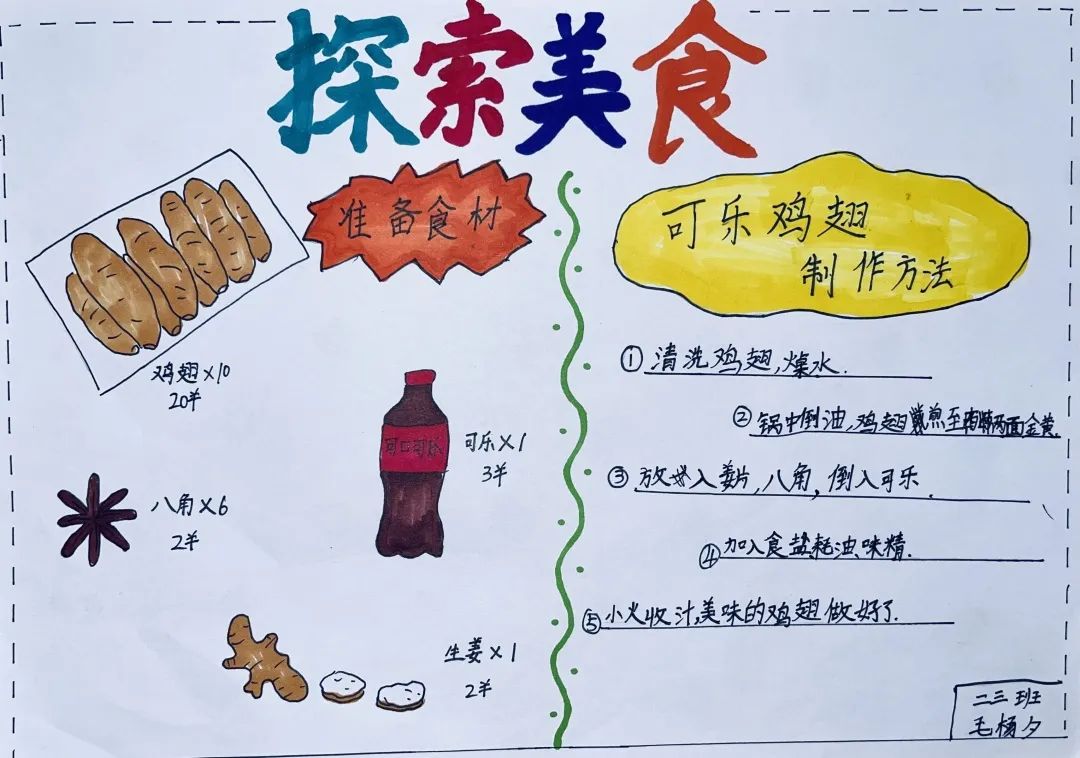 探索美食
准备食材
鸡翅×10
20半
可口可乐
可乐×1
3半
八角×6
2半
生姜×1
2半
可乐鸡翅
制作方法
①清洗鸡翅,燥水.
②锅中倒油,鸡翅煎至两面金黄.
③放入姜片,八角,倒入可乐.
④加入食盐、耗油、味精.
⑤小火收汁,美味的鸡翅做好了.
二三班
毛杨夕